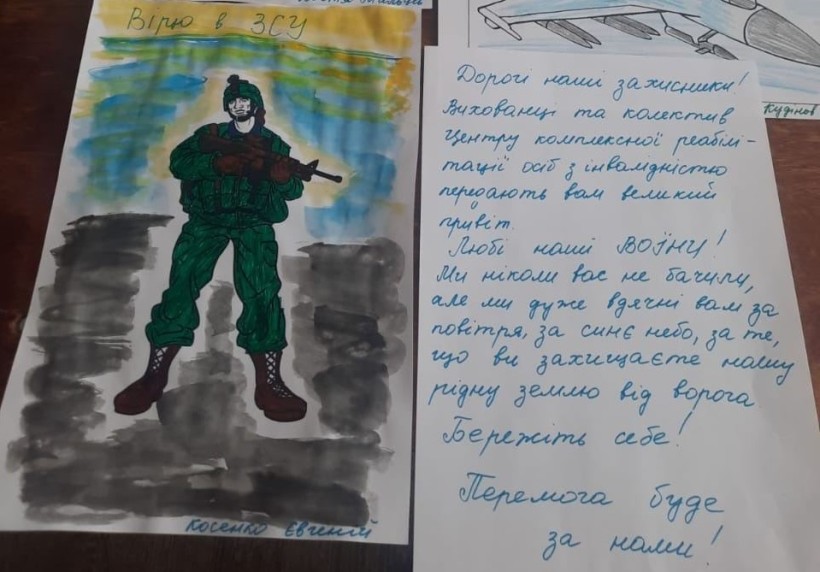 Вірю в ЗСУ
Косенко Євгеній
Кудінов
Дорогі наші захисники!
Вихованці та колектив
Центру комплексної реабілі-
тації осіб з інвалідністю
передають вам великий
привіт.
Любі наші ВОЇНИ!
Ми ніколи вас не бачили,
але ми дуже вдячні вам за
повітря, за синє небо, за те,
що ви захищаєте нашу
рідну землю від ворога
Бережіть себе!
Перемога буде
за нами!